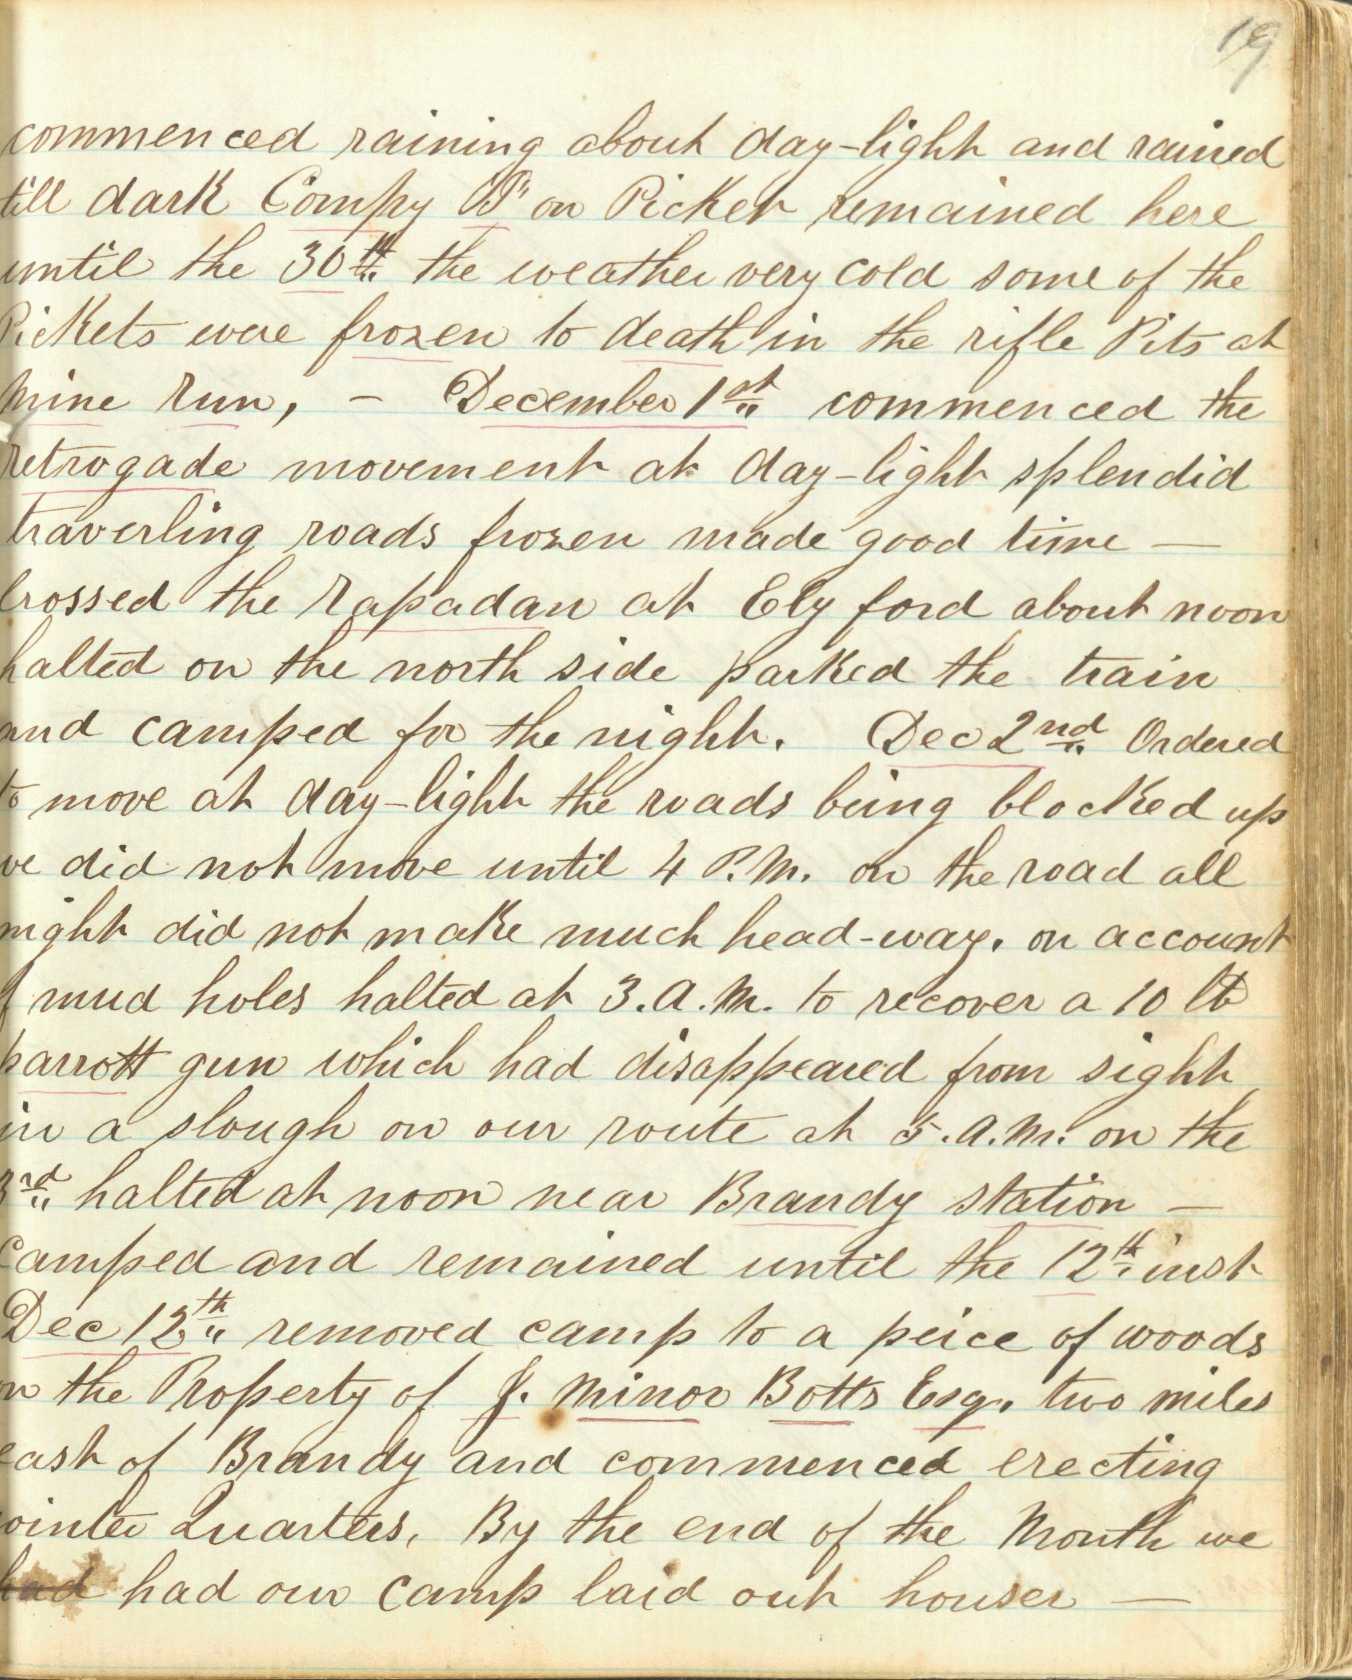 19
commenced raining about day-light and rained
till dark Compy "B" on Picket remained here
until the 30th the weather very cold some of the
Pickets were frozen to death in the rifle Pits at
Mine run, - December 1st commenced the
retrogade movement at day-light splendid
traverling roads frozen made good time —
Crossed the rapadan at Ely ford about noon
halted on the north side parked the train
and camped for the night. Dec 2nd Ordered
to move at day-light the roads being blocked up
we did not move until 4 P.M. on the road all
night did not make much head-way. on account
of mud holes halted at 3.A.M. to recover a 10 lb
parrott gun which had disappeared from sight
in a slough on our route at 5.A.M. on the
3rd halted at noon near Brandy station —
Camped and remained until the 12th inst
Dec 12th removed camp to a peice of woods
on the Property of J. Minor Botts Esq. two miles
east of Brandy and commenced erecting
winter Quarters, By the end of the Month we
had had our camp laid out houses —